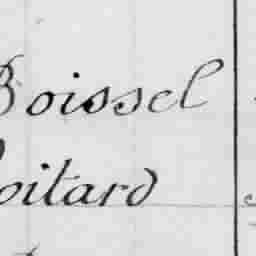 Boissel
oitard